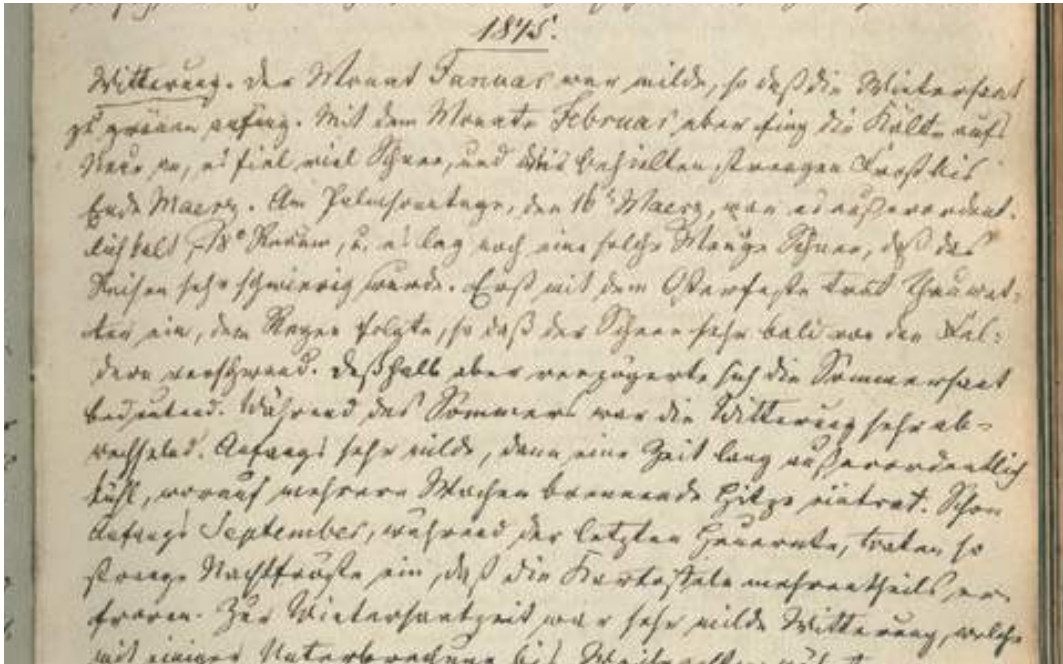 1845.
Witterung. Der Monat Januar war milde, so daß die Wintersaat
zu grünen anfing. Mit dem Monate Februar aber fing die Kälte aufs
Neue an, es fiel viel Schnee, und wir behielten strengen Frost bis
Ende Maerz. Am Palmsonntage, den 16. Maerz, war es außerordent-
lich kalt, -18° Reaum, u. es lag noch eine solche Menge Schnee, daß das
Reisen sehr schwierig wurde. Erst mit dem Osterfeste trat Thauwet-
ter ein, dem Regen folgte, so daß der Schnee sehr bald von den Fel-
dern verschwand. Deßhalb aber verzögerte sich die Sommersaat
bedeutend. Während des Sommers war die Witterung sehr ab-
wechselnd. Anfangs sehr milde, dann eine Zeit lang außerordentlich
kühl, worauf mehrere Wochen brennende Hitze eintrat. Schon
Anfangs September, während der letzten Heuernte, traten so
strenge Nachtfröste ein, daß die Kartoffeln mehrentheils er-
froren. Zur Wintersaatzeit war sehr milde Witterung, welche
mit einiger Unterbrechung bis Weihnachten